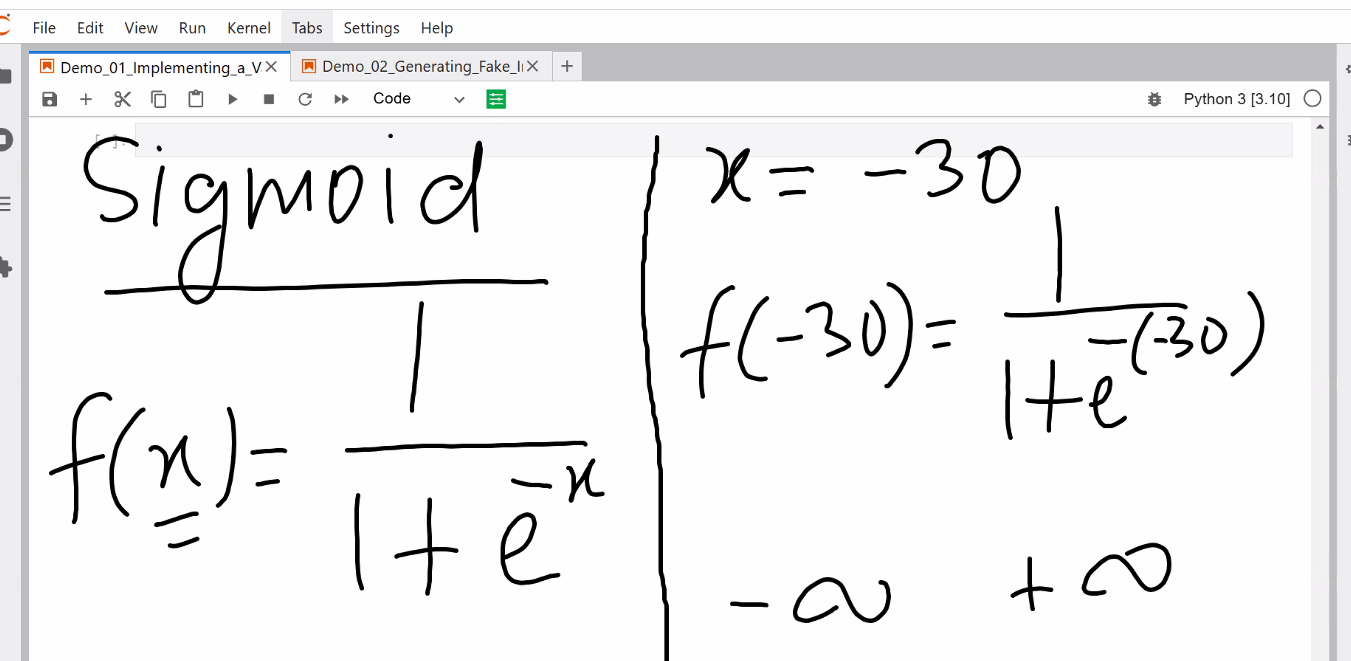 File Edit View Run Kernel Tabs Settings Help
Demo_01_Implementing_a_V Demo_02_Generating_Fake_I
Code Python 3 [3.10]
[ ]:
Sigmoid
f(x) = 1 / (1 + e^-x)
x = -30
f(-30) = 1 / (1 + e^-(-30))
-∞ +∞